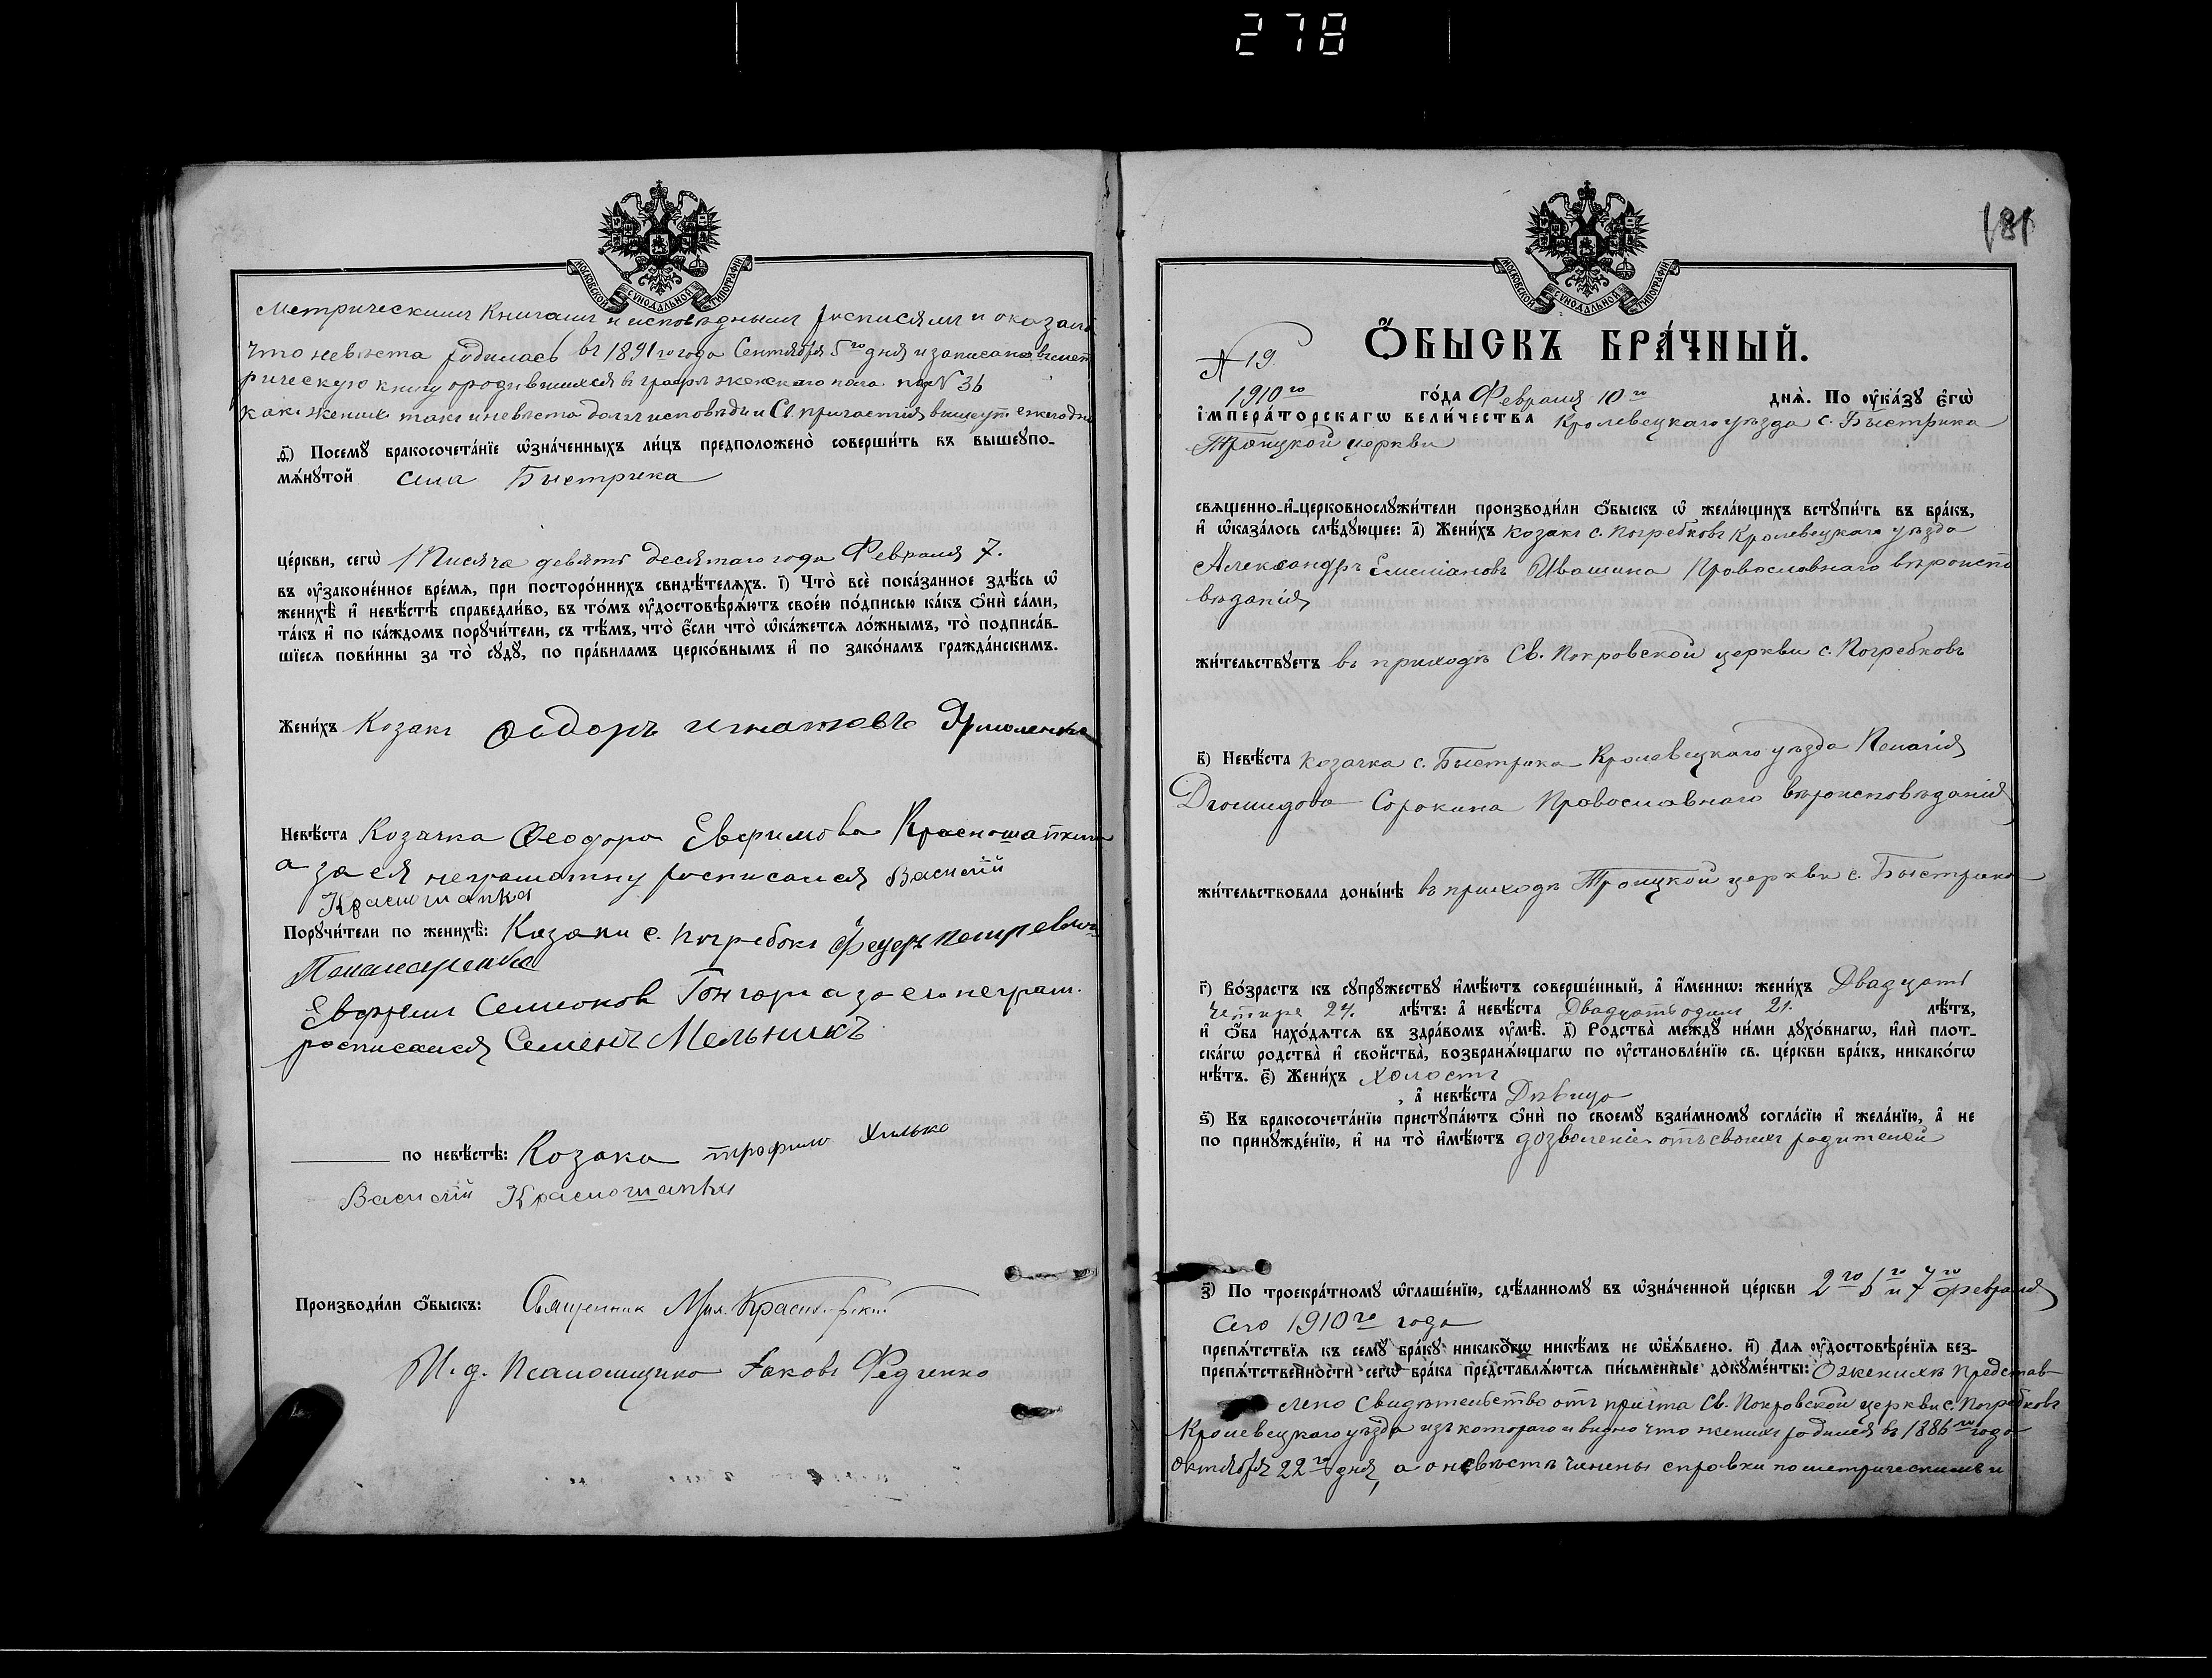 278
МОСКОВСКОЙ СѴНОДАЛЬНОЙ ТИПОГРАФІИ
Метрическимъ Книгамъ и исповѣднымъ росписямъ и оказалось
что невѣста родилась въ 1891 го года Сентября 5го дня и записана въ мет
рическую книгу о родившихся въ графѣ женскаго пола подъ N 36
какъ женихъ такъ и невѣста долгъ исповѣди и Св. причастія выполняют ежегодно
ѳ҃) Посемꙋ бракосочета́нїе ѡ҆зна́ченныхъ ли́цъ предположено̀ соверши́ть въ вышеꙋпо-
мѧ́нꙋтой села Быстрика
це́ркви, сегѡ̀ 1 Тисяча девять десятаго года Февраля 7.
въ ѹ҆зако́ненное вре́мѧ, при посторо́ннихъ свидѣ́телѧхъ. і҃) Что̀ всѐ пока́занное здѣ́сь ѡ҆
женихѣ̀ и҆ невѣ́стѣ справедли́во, въ то́мъ ѹ҆достовѣрѧ́ютъ свое́ю по́дписью ка́къ ѻ҆нѝ са́ми,
та́къ и҆ по ка́ждомъ порꙋчи́тели, съ тѣ́мъ, что̀ є҆́сли что̀ ѡ҆ка́жетсѧ ло́жнымъ, то̀ подписа́в-
шїесѧ пови́нны за то̀ сꙋдꙋ̀, по пра́виламъ церко́внымъ и҆ по зако́намъ гражда́нскимъ.
Жени́хъ Козакъ Ѳедоръ игнатовъ Ярмоленко
Невѣ́ста Козачка Ѳеодора Евфимова Красношапкина
а за ея неграмотну росписался Василій
Красношапка
Порꙋчи́тели по женихѣ̀: Козаки с. Погребокъ Федеръ петревичъ
Понамаренко
Евфимъ Семеновъ Гончаръ а за его неграм.
росписался Семенъ Мельникъ
по невѣ́стѣ: Козаки трофимъ Хилько
Василій Красношапка
Производи́ли ѻ҆́быскъ: Священникъ Мих.
И. д. Псаломщика Іаковъ Федченко
181
МОСКОВСКОЙ СѴНОДАЛЬНОЙ ТИПОГРАФІИ
Ѻ҆́БЫСКЪ БРА́ЧНЫЙ.
N 19
1910 го го́да Февраля 10 го днѧ̀. По ѹ҆ка́зꙋ є҆гѡ̀
і҆мпера́торскагѡ вели́чества Кролевецкаго уѣзда с. Быстрика
Троицкой церкви
свѧщенно-и҆-церковнослꙋжи́тели производи́ли ѻ҆́быскъ ѡ҆ жела́ющихъ вступи́ть въ бра́къ,
и҆ ѡ҆каза́лось слѣ́дꙋющее: а҃) Жени́хъ козакъ с. Погребковъ Кролевецкаго уѣзда
Александръ Емеліановъ Ивашина Православнаго вѣроиспо
вѣданія
жи́тельствꙋетъ въ приходѣ Св. Покровской церкви с. Погребковъ
в҃) Невѣ́ста козачка с. Быстрика Кролевецкаго уѣзда Пелагія
Диомидова Сорокина Православнаго вѣроисповѣданія
жи́тельствовала доны́нѣ въ приходѣ Троицкой церкви с. Быстрика
г҃) Во́зрастъ къ сꙋпрꙋ́жествꙋ и҆мѣ́ютъ соверше́нный, а҆ и҆́меннѡ: жени́хъ Двадцать
четыре 24. лѣ́тъ: а҆ невѣ́ста Двадцать один 21. лѣ́тъ,
и҆ ѻ҆́ба нахо́дѧтсѧ въ здра́вомъ ѹ҆мѣ̀. д҃) Родства̀ междꙋ̀ ни́ми дꙋхо́внагѡ, и҆лѝ плот-
ска́гѡ родства̀ и҆ свойства̀, возбранѧ́ющагѡ по ѹ҆становле́нїю св. це́ркви бра́къ, никако́гѡ
нѣ́тъ. є҃) Жени́хъ холостъ
, а҆ невѣ́ста Дѣвица
ѕ҃) Къ бракосочета́нїю пристꙋпа́ютъ ѻ҆нѝ по своемꙋ̀ взаи́мномꙋ согла́сїю и҆ жела́нїю, а҆ не
по принꙋжде́нїю, и҆ на то̀ и҆мѣ́ютъ дозволеніе отъ своихъ родителей
з҃) По троекра́тномꙋ ѡ҆глаше́нїю, сдѣ́ланномꙋ въ ѡ҆зна́ченной це́ркви 2го 6го и 7го февраля
сего 1910 го года
препѧ́тствїѧ къ семꙋ̀ бра́кꙋ никако́гѡ никѣ́мъ не ѡ҆бъѧ́влено. и҃) Длѧ ѹ҆достовѣре́нїѧ без-
препѧ́тственности сегѡ̀ бра́ка представлѧ́ютсѧ пи́сьменные докꙋме́нты: О женихѣ представ-
лено Свидѣтельство отъ причта Св. Покровской церкви с. Погребковъ
Кролевецкаго уѣзда изъ котораго и видно что женихъ родился въ 1886 го года
октября 22 го дня, а о невѣстѣ чинены справки по метрическимъ и